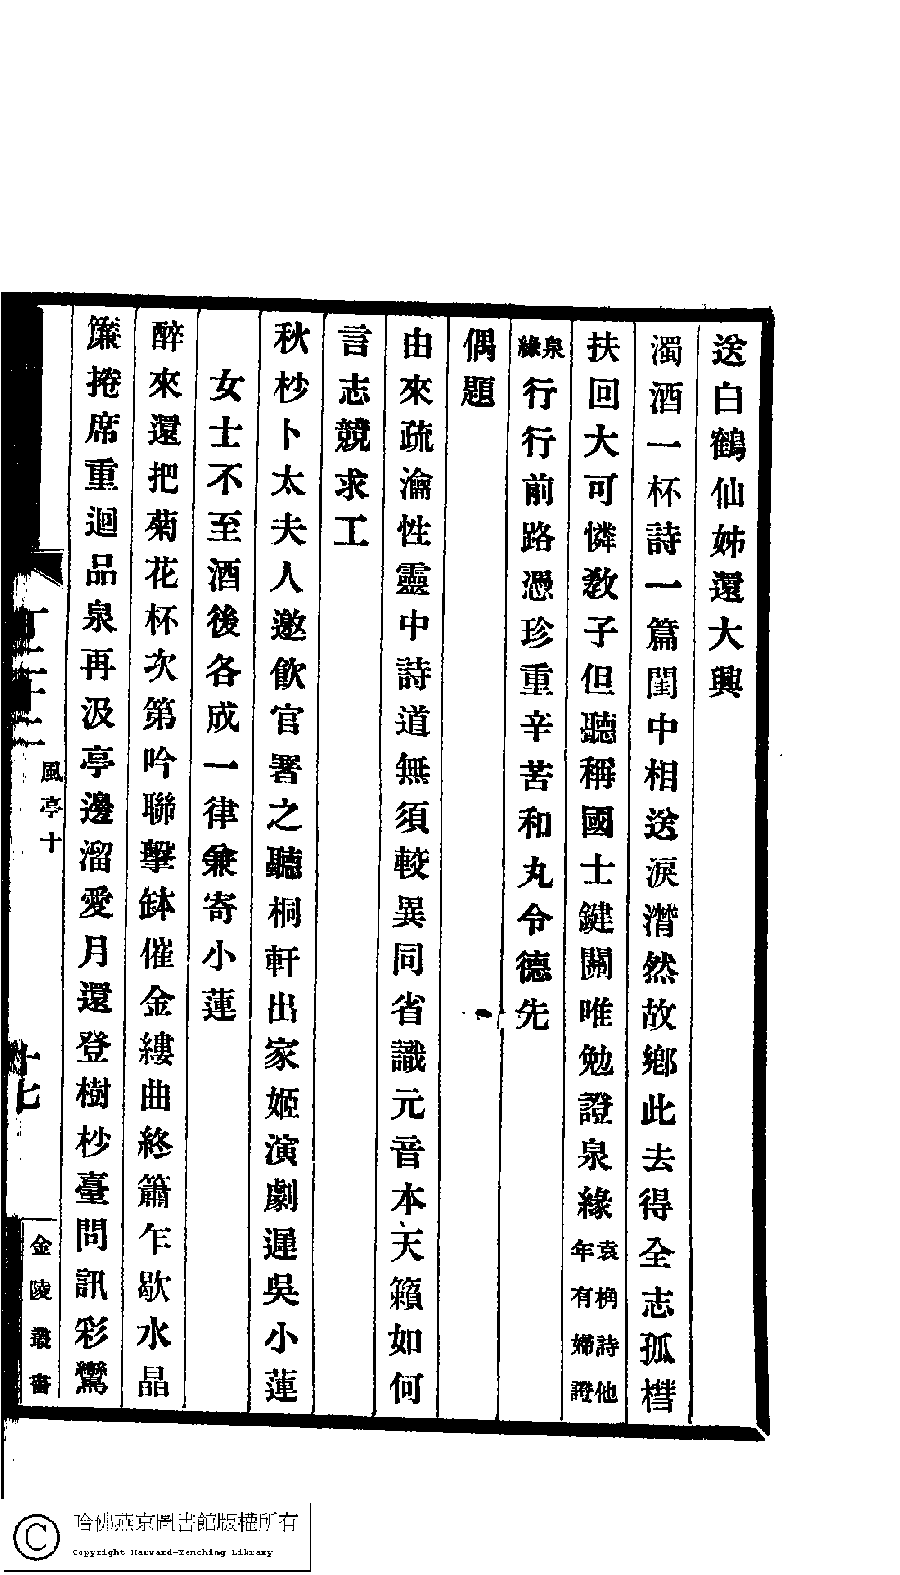 送白鶴仙姊還大興
濁酒一杯詩一篇閨中相送淚潸然故鄉此去得全志孤櫘
扶回大可憐敎子但聽稱國士鍵關唯勉證泉緣袁桷詩他年有婦證
泉緣行行前路憑珍重辛苦和丸令德先
偶題
由來疏瀹性靈中詩道無須較異同省識元音本天籟如何
言志競求工
秋杪卜太夫人邀飮官署之聽桐軒出家姬演劇遲吳小蓮
女士不至酒後各成一律兼寄小蓮
醉來還把菊花杯次第吟聯擊鉢催金縷曲終簫乍歇水晶
簾捲席重迴品泉再汲亭邊溜愛月還登樹杪臺問訊彩鸞
風亭十
十七
金陵叢書
哈佛燕京圖書館版權所有
Copyright Harvard-Yenching Library